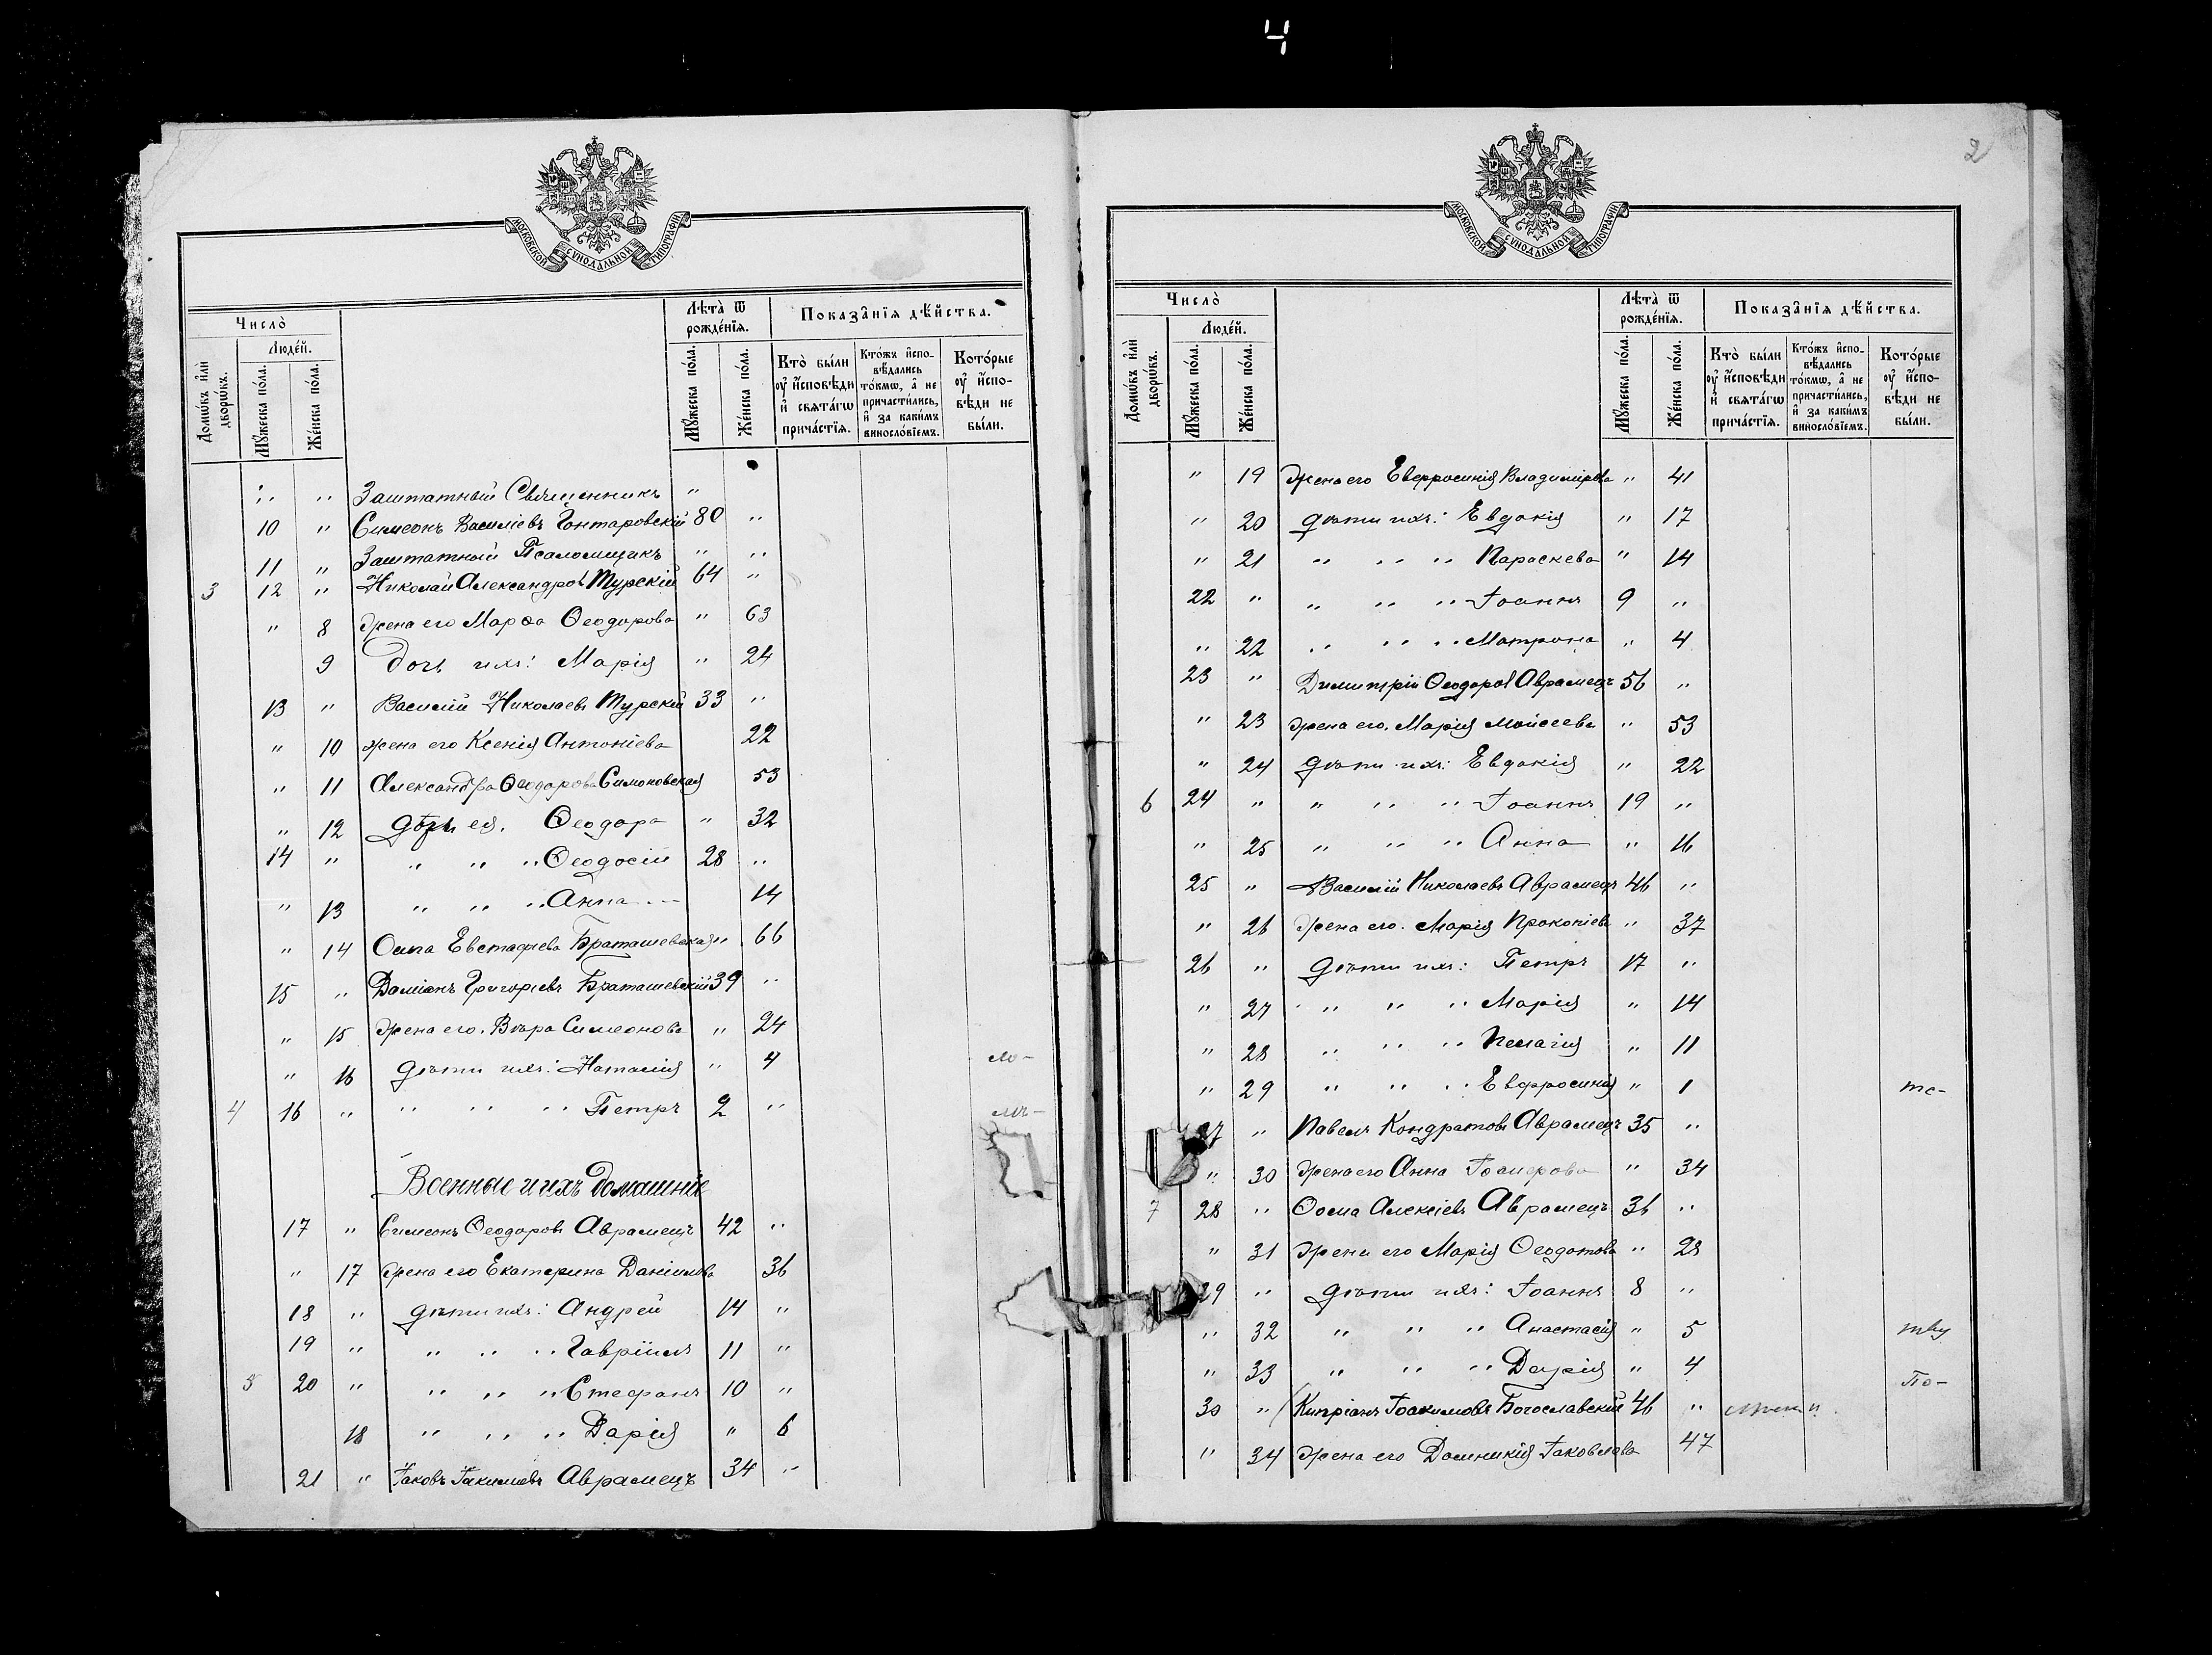 4
МОСКОВСКОЙ СУНОДАЛЬНОЙ ТИПОГРАФІИ
Число̀
Лѣта̀ ѿ рожде́нїѧ.
Показа̂нїѧ дѣ́йства.
Люде́й.
Домѡ́въ и҆лѝ дворѡ́въ.
Мꙋ́жеска по́ла.
Же́нска по́ла.
Мꙋ́жеска по́ла.
Же́нска по́ла.
Кто̀ бы́ли ᲂу҆ и҆́сповѣди и҆ свѧта́гѡ прича́стїѧ.
Кто́жъ и҆спо-вѣ́дались то́кмѡ, а҆ не причасти́лись, и҆ за каки́мъ винословїемъ.
Кото́рые ᲂу҆ и҆́спо-вѣди не бы́ли.
" " Заштатный Священникъ "
10 " Симеонъ Василіевъ Гонтаровскій 80 "
11 " Заштатный Псаломщикъ " "
3 12 " Николай Александровъ Турскій 64 "
" 8 Жена его Марѳа Ѳеодорова " 63
9 Дочь ихъ: Марія " 24
13 " Василій Николаевъ Турскій 33 "
" 10 жена его Ксенія Антоніева 22
" 11 Александра Ѳеодорова Симоновская 53
" 12 Дѣти ея. Ѳеодора " 32
14 " " " " Ѳеодосій 28 "
" 13 " " " Анна 14
" 14 Евстафіева Браташевская " 66
15 " Даміанъ Григоріевъ Браташевскій 39 "
" 15 Жена его. Вѣра Симеонова " 24
" 16 Дѣти ихъ: Наталія " 4
4 16 " " " " Петръ 2 "
Военные и ихъ домашніе
17 " Симеонъ Ѳеодоровъ Аврамецъ 42 "
" 17 Жена его Екатерина Даніилова 36
18 " дѣти ихъ: Андрей 14 "
19 " " " " Гавріилъ 11 "
5 20 " " " " Стефанъ 10 "
18 " " " Дарія " 6
21 " Іаковъ Іакимовъ Аврамецъ 34 "
2
МОСКОВСКОЙ СУНОДАЛЬНОЙ ТИПОГРАФІИ
Число̀
Лѣта̀ ѿ рожде́нїѧ.
Показа̂нїѧ дѣ́йства.
Люде́й.
Домѡ́въ и҆лѝ дворѡ́въ.
Мꙋ́жеска по́ла.
Же́нска по́ла.
Мꙋ́жеска по́ла.
Же́нска по́ла.
Кто̀ бы́ли ᲂу҆ и҆́сповѣди и҆ свѧта́гѡ прича́стїѧ.
Кто́жъ и҆спо-вѣ́дались то́кмѡ, а҆ не причасти́лись, и҆ за каки́мъ винословїемъ.
Кото́рые ᲂу҆ и҆́спо-вѣди не бы́ли.
" 19 Жена его Евфросинія Владимірова " 41
" 20 дѣти ихъ: Евдокія " 17
" 21 " " " Параскева " 14
22 " " " " Іоаннъ 9 "
" 22 " " " Матрона " 4
23 " Димитрій Ѳеодоровъ Аврамецъ 56 "
" 23 Жена его. Марія Моисеева " 53
" 24 Дѣти ихъ: Евдокія " 22
6 24 " " " " Іоаннъ 19 "
" 25 " " " Анна " 16
25 " Василій Николаевъ Аврамецъ 46 "
" 26 Жена его. Марія Прокопіева " 37
26 " Дѣти ихъ: Петръ 17 "
" 27 " " " Марія " 14
" 28 " " " Пелагія " 11
" 29 " " " Евфросинія " 1 те-
27 " Павелъ Кондратовъ Аврамецъ 35 "
" 30 Жена его Анна " 34
7 28 " Ѳома Алексіевъ Аврамецъ 36 "
" 31 Жена его Марія Ѳеодотова " 28
29 " Дѣти ихъ: Іоаннъ 8 "
" 32 " " " Анастасія " 5
" 33 " " " Дарія " 4 По-
30 " Кипріанъ Іоакимовъ Богославскій 46 "
" 34 Жена его Домникія Іаковлева 47